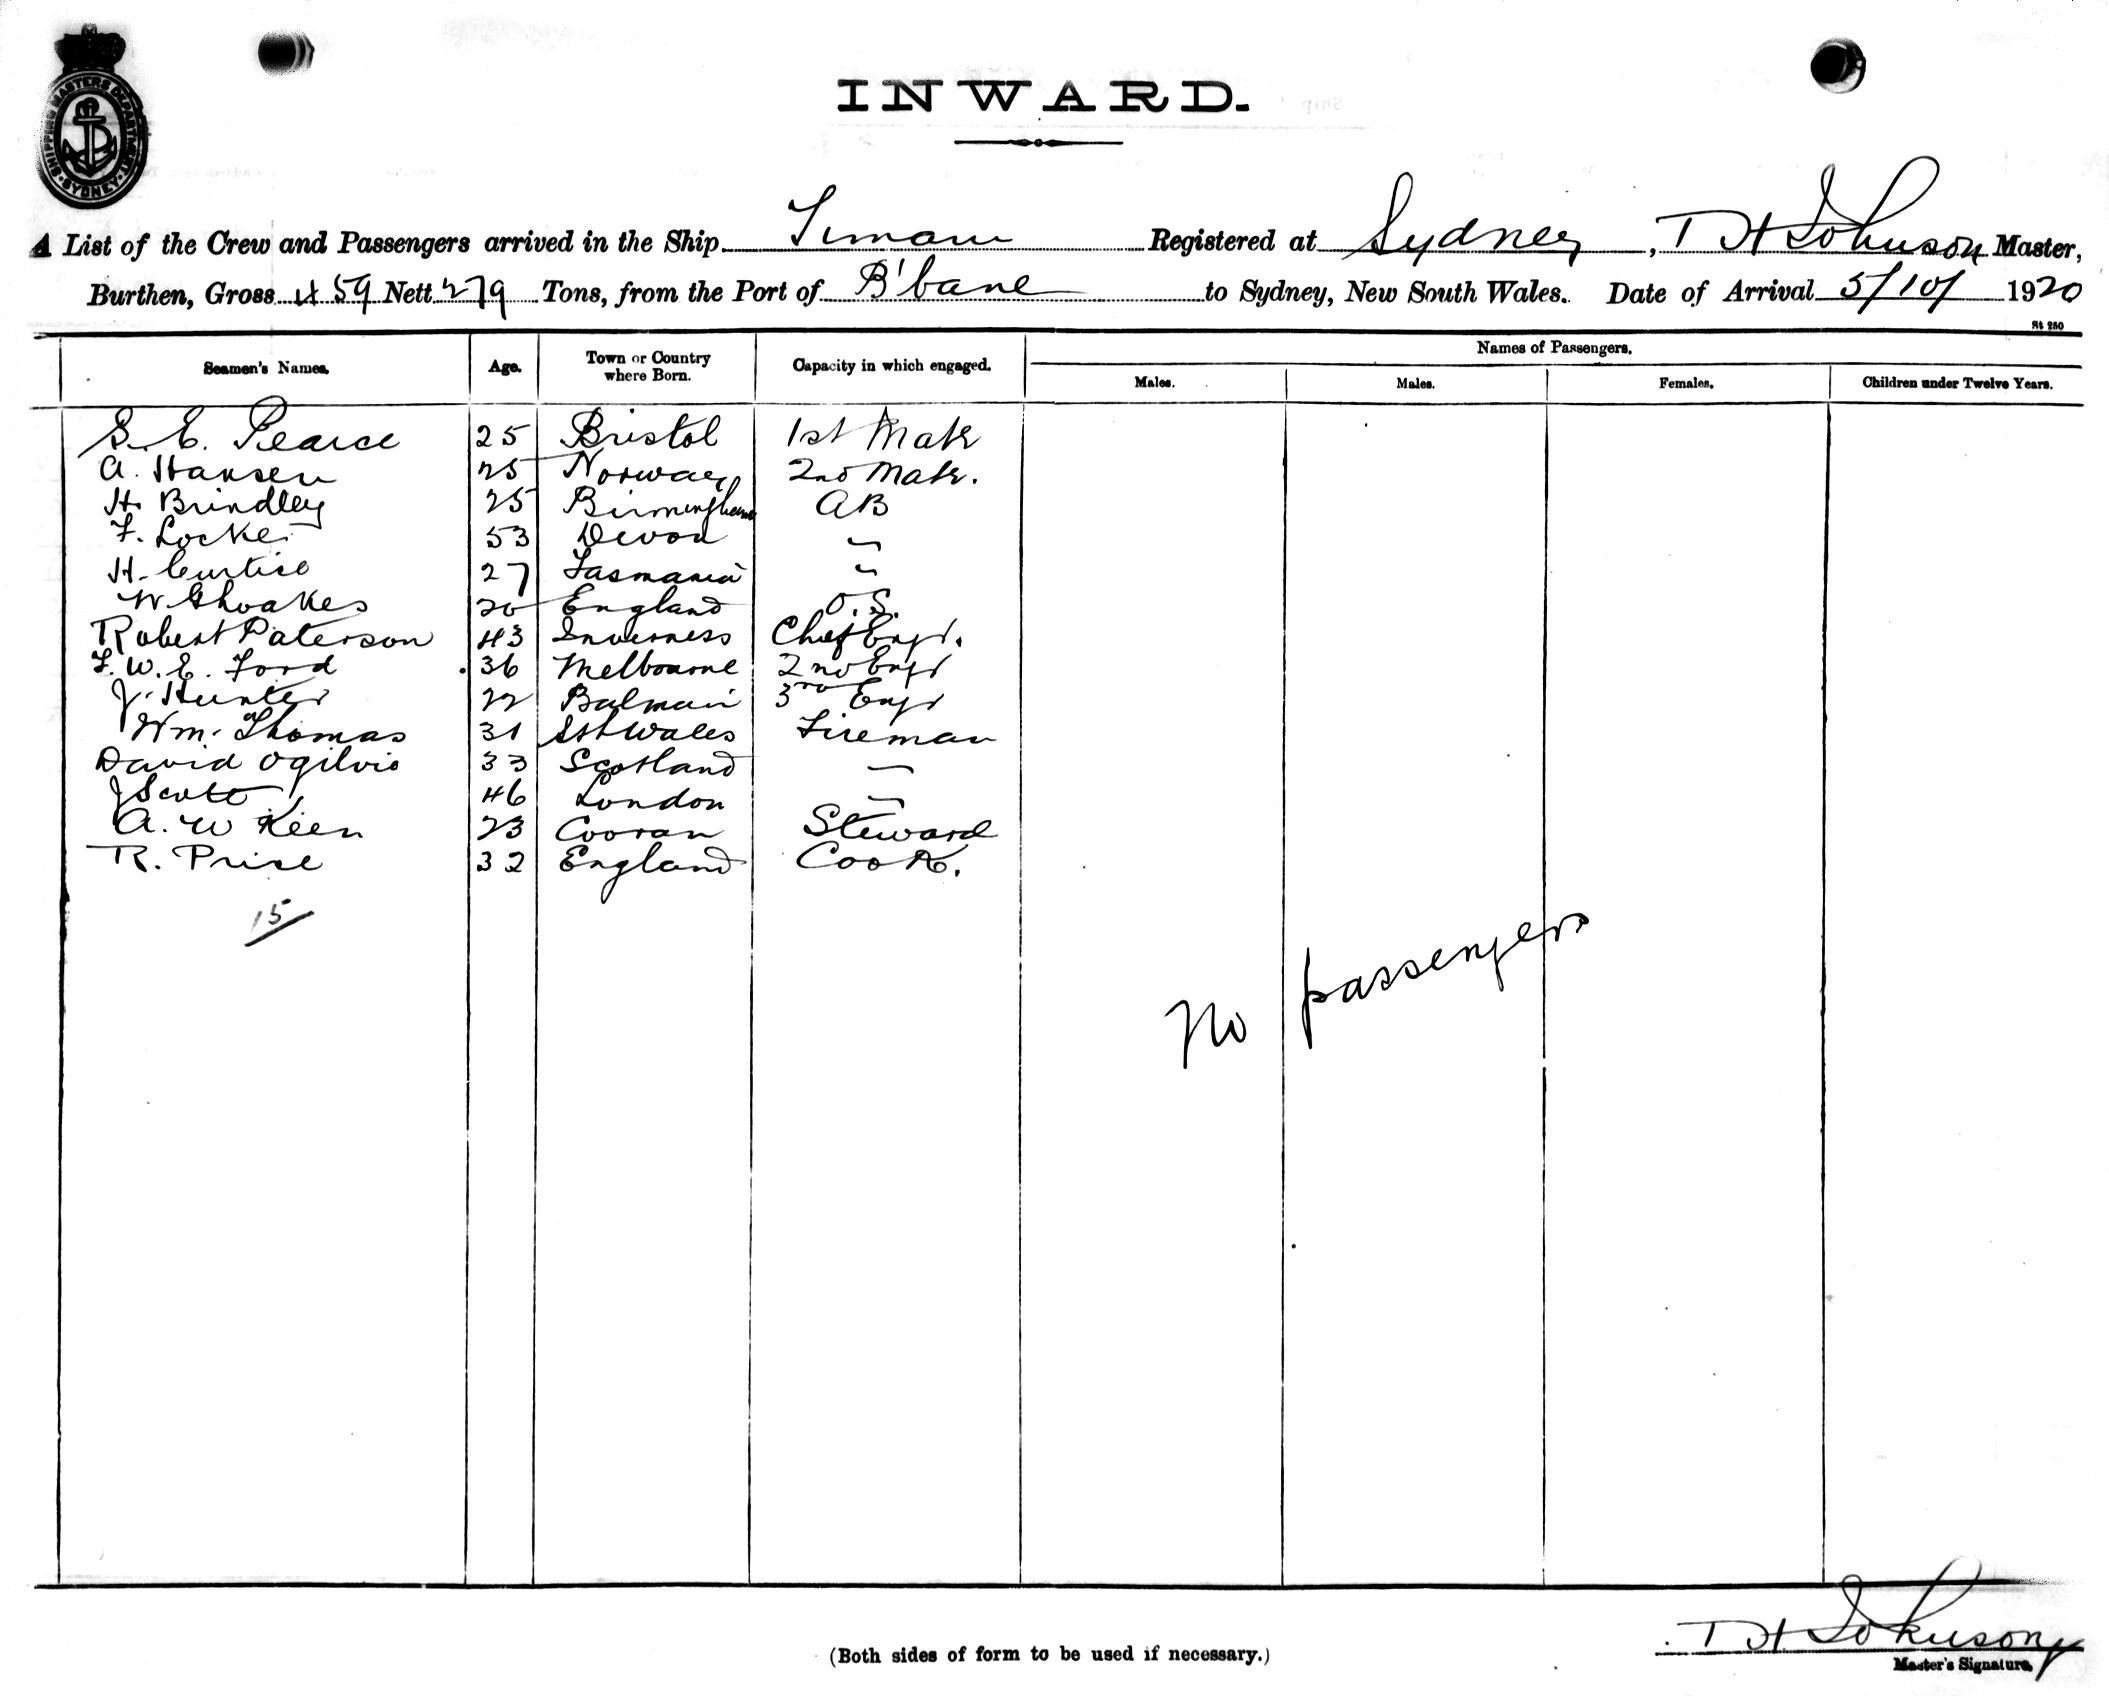 SHIPPING MASTERS DEPARTMENT
SYDNEY
INWARD.
A List of the Crew and Passengers arrived in the Ship Registered at Sydney, T H Johnson Master,
Burthen, Gross 459 Nett 279 Tons, from the Port of B'bane to Sydney, New South Wales. Date of Arrival 5/10/ 1920
St 250
Seamen's Names. Age. Town or Country where Born. Capacity in which engaged. Names of Passengers.
Males. Males. Females. Children under Twelve Years.
S. E. Pearce 25 Bristol 1st Mate
A. Hansen 25 Norway 2nd Mate.
H. Brindley 25 Birmingham AB
F. Locke 53 Devon "
H. Curtice 27 Tasmania "
W. 20 England O.S.
Robert Paterson 43 Inverness Chief Engr.
F. W. E. Ford 36 Melbourne 2nd Engr
J. Hunter 22 Balmain 3rd Engr
Wm. Thomas 31 Sth Wales Fireman
David Ogilvie 33 Scotland "
J Scott 46 London "
A. W Keen 23 Cooran Steward
R. Price 32 England Cook.
15
No passengers
T H Johnson
(Both sides of form to be used if necessary.)
Master's Signature.